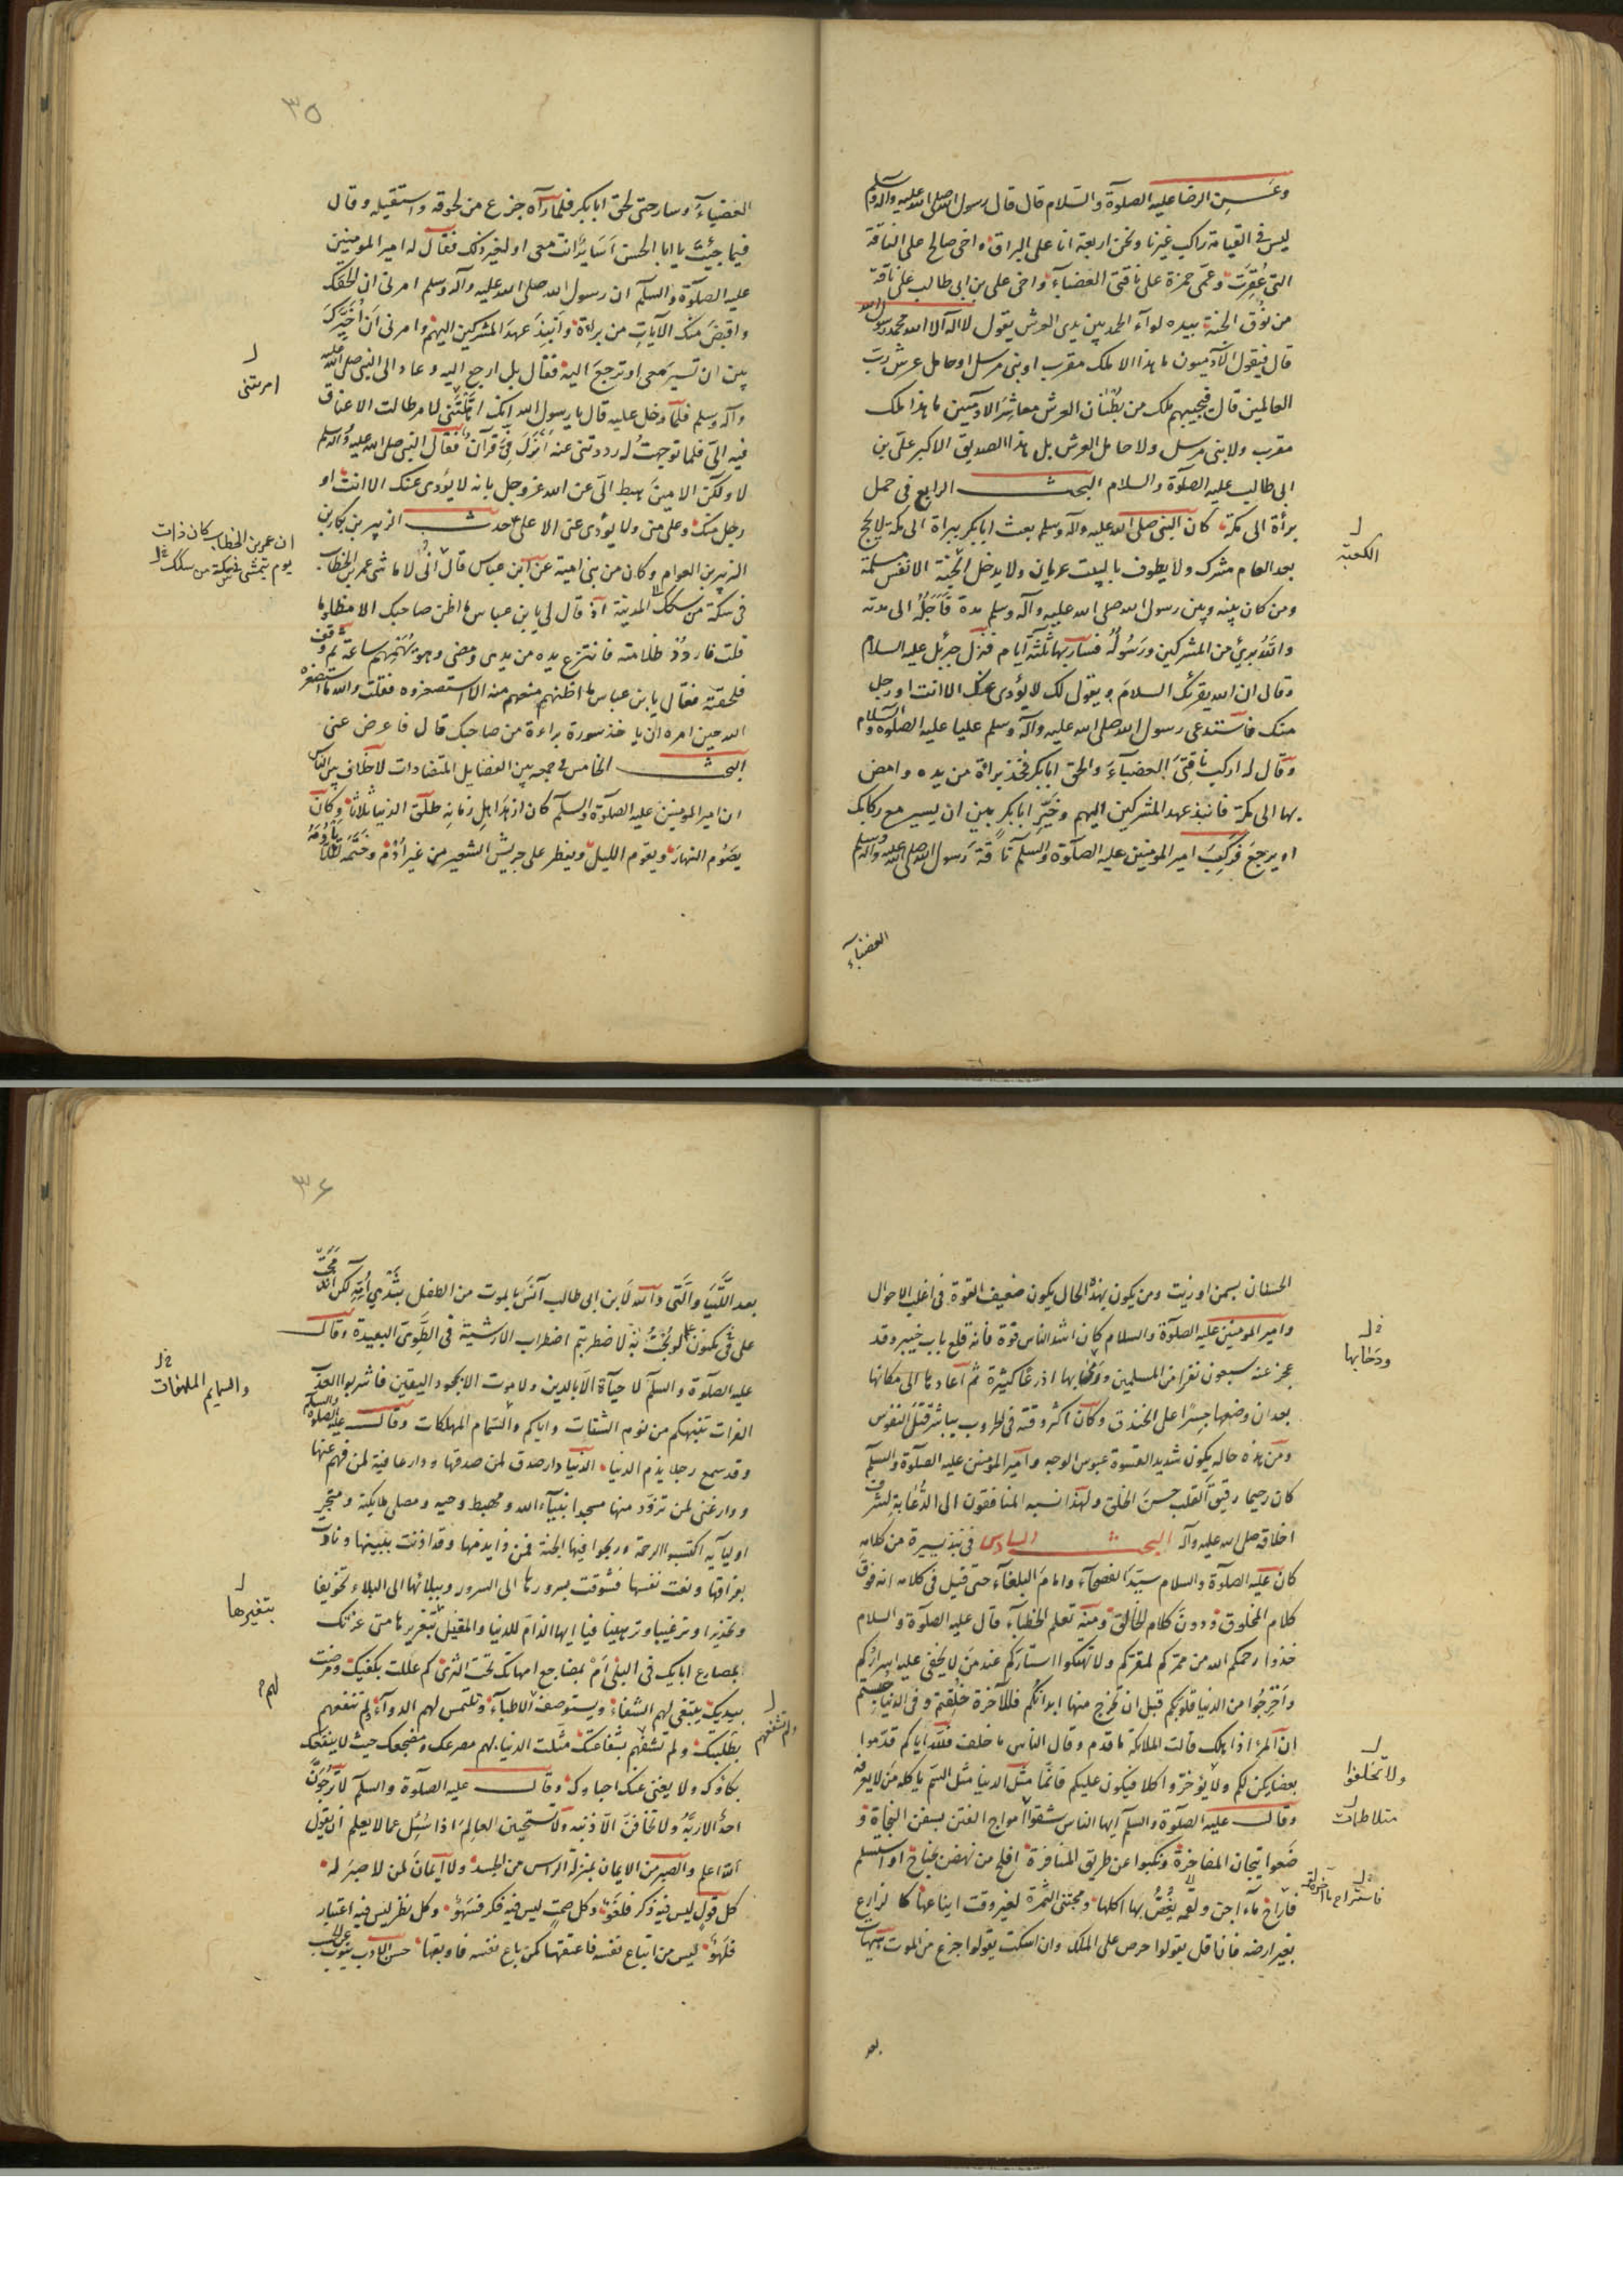 وعن الرضا عليه الصلوة والسلام قال قال رسول الله صلى الله عليه وآله وسلم
ليس فى القيامة راكب غيرنا ونحن اربعة انا على البراق واخى صالح على الناقة
التى عُقِرَت وعمّى حمزة على ناقتى العضبآء واخى على بن ابى طالب على ناقة
من نوق الجنة بيده لوآء الحمد بين يدى العرش يقول لا اله الا الله محمد رسول الله
قال فيقول الآدميون ما هذا الا ملك مقرب او نبى مرسل او حامل عرش رب
العالمين قال فيجيبهم ملك من بُطْنان العرش معاشر الآدميين ما هذا ملك
مقرب ولا نبى مرسل ولا حامل العرش بل هذا الصديق الاكبر علىّ بن
ابى طالب عليه الصلوة والسلام البحث الرابع فى حمل
برأة الى مكة كان النبى صلى الله عليه وآله وسلم بعث ابابكر ببراة الى مكة لا يحج
بعد العام مشرك ولا يطوف بالبيت عريان ولا يدخل الجنة الا نفس مسلمة
ومن كان بينه وبين رسول الله صلى الله عليه وآله وسلم مدة فاَجَلُهُ الى مدته
والله برئ من المشركين ورَسُولُهُ فسار بها ثلثة ايام فنزل جبرئل عليه السلام
وقال ان الله يقرئك السلام ويقول لك لا يؤدى عنك الا انت او رجل
منك فاستدعى رسول الله صلى الله عليه وآله وسلم عليا عليه الصلوة والسلام
وقال له اركب ناقتى العضبآء والحق ابابكر فخذ براة من يده وامض
بها الى مكة فانبذ عهد المشركين اليهم وخَيِّر ابابكر بين ان يسير مع ركابك
او يرجع فركب امير المومنين عليه الصلوة والسلم ناقة رسول الله صلى الله عليه وآله وسلم
العضبآء
الكعبة
٣٥
العضبآء وسار حتى لحق ابابكر فلما رآه جزع من لحوقه واستقبله وقال
فيما جئت يا ابا الحسن اَسَايرٌ انت معى او لغير ذلك فقال له امير المومنين
عليه الصلوة والسلم ان رسول الله صلى الله عليه وآله وسلم امرنى ان الحقك
واقبض منك الآيات من براة وانبذ عهد المشركين اليهم وامرنى ان اُخَيِّرك
بين ان تسير معى او ترجع اليه فقال بل ارجع اليه وعاد الى النبى صلى الله عليه
وآله وسلم فلما دخل عليه قال يا رسول الله انك اهّلتنى لامر طالت الاعناق
فيه الىّ فلما توجهت له رددتنى عنه أنزل فىّ قرآن فقال النبى صلى الله عليه وآله وسلم
لا ولكن الامين هبط الىّ عن الله عز وجل بانه لا يؤدى عنك الا انت او
رجل منك وعلىّ منى ولا يؤدى عنى الا على حدث الزبير بن بكار بن
الزبير بن العوام وكان من بنى امية عن ابن عباس قال انّى لاماشى عمر بن الخطاب
فى سكة من سكك المدينة اذ قال لى يا بن عباس ما اظن صاحبك الا مظلوما
قلت فاردُدْ ظلامته فانتزع يده من يدى ومضى وهو يُهَمهِم ساعة ثم وقف
فلحقته فقال يا بن عباس ما اظنهم منعهم منه الا استصغروه فقلت والله ما استصغره
الله حين امره ان ياخذ سورة براءة من صاحبك قال فاعرض عنى
البحث الخامس فى جمعه بين الفضايل المتضادات لا خلاف بين الناس
ان امير المومنين عليه الصلوة والسلم كان ازهد اهل زمانه طلّق الدنيا ثلاثا وكان
يصُوم النهار ويقوم الليل ويفطر على جريش الشعير من غير اُدْم وختمه لئلا يأدُمَهُ
امرتنى
ان عمر بن الخطاب كان ذات
يوم يتمشى فى سكة من سكك
الحسنان بسمن او زيت ومن يكون بهذه الحال يكون ضعيف القوة فى اغلب الاحوال
وامير المومنين عليه الصلوة والسلام كان اشد الناس قوة فانه قلع باب خيبر وقد
عجز عنه سبعون نفرا من المسلمين ودحٰا بها اذرعا كثيرة ثم اعادها الى مكانها
بعد ان وضعها جسرًا على الخندق وكان اكثر وقته فى الحروب يباشر قتل النفوس
ومن هذه حاله يكون شديد القسوة عبوس الوجه وامير المومنين عليه الصلوة والسلم
كان رحيما رقيق القلب حسن الخلق ولهذا نسبه المنافقون الى الدُّعابة لشرف
اخلاقه صلى الله عليه وآله البحث السادس فى نبذ يسيرة من كلامه
كان عليه الصلوة والسلام سيّد الفصحآء وامام البلغآء حتى قيل فى كلامه انه فوق
كلام المخلوق ودون كلام الخالق ومنه تعلم الخطبآء قال عليه الصلوة والسلام
خذوا رحمكم الله من ممركم لمقركم ولا تهتكوا استاركم عند من لا يخفى عليه اسراركم
واَخْرِجُوا من الدنيا قلوبكم قبل ان تخرج منها ابدانكم فللآخرة خُلِقتم وفى الدنيا حبستم
ان المرء اذا هلك قالت الملائكة ما قدم وقال الناس ما خلف فلله اباكم قدّموا
بعضا يكن لكم ولا يؤخّروا كلا فيكون عليكم فانما مثل الدنيا مثل السّم ياكله من لا يعرفه
وقال عليه الصلوة والسلم ايها الناس شقوا امواج الفتن بسفن النجاة و
ضَعوا تيجان المفاخرة ونكبوا عن طريق المنافرة افلح من نهض بجناح او استسلم
فاراح مآء اجن ولقمة يَغُصُّ بها اكلها ومجتنى الثمرة لغير وقت ايناعها كالزارع
بغير ارضه فان اقل يقولوا حرص على الملك وان اسكت يقولوا جزع من الموت هيهات
بعد
ودحا بها
ولا تخلفوا
متلاطمات
فاستراح
٣٦
بعد اللَّتَيَّا والَّتى والله لَابن ابى طالب آنَسُ بالموت من الطفل بثَدْىِ اُمّهِ لكن اندمجت
على مكنون علم لو بُحْتُ به لاضطربتم اضطراب الارشية فى الطَّوِىّ البعيدة وقال
عليه الصلوة والسلم لا حياة الا بالدين ولا موت الا بجحود اليقين فاشربوا العذب
الفرات ينبهكم من نوم السُّبات واياكم والسمايم المهلكات وقال عليه الصلوة والسلم
وقد سمع رجلا يذم الدنيا الدنيا دار صدق لمن صدقها ودار عافية لمن فهم عنها
ودار غنى لمن تزوّد منها مسجد انبيآء الله ومهبط وحيه ومصلى ملايكته ومتجر
اوليآيه اكتسبوا الرحمة وربحوا فيها الجنة فمن ذا يذمها وقد اذنت ببينها ونادت
بفراقها ونعت نفسها فشوقت بسرورها الى السرور وببلائها الى البلاء تخويفا
وتحذيرا وترغيبا وترهيبا فيا ايها الذامّ للدنيا والمغتر بتغريرها متى غرّتك
ابمصارع ابايك فى البلى اَمْ بمضاجع امهاتك تحت الثرى كم عللت بكفيك ومرضت
بيديك يبتغى لهم الشفاء ويستوصف الاطبآء وتلتمس لهم الدوآء لم تنفعهم
بطلبتك ولم تشفهم بشفاعتك مثّلت الدنيا بهم مصرعك ومضجعك حيث لا ينفعك
بكاؤك ولا يغنى عنك احباؤك وقال عليه الصلوة والسلم لا ترجُوَنَّ
احدٌ الا ربَّهُ ولا تخافنّ الّا ذنبه ولا تستحين العالم اذا سُئِل عما لا يعلم ان يقول
الله اعلم والصبر من الايمان بمنزلة الراس من الجسد ولا ايمان لمن لا صبر له
كل قول ليس فيه ذكر فلغو وكل صمت ليس فيه فكر فسَهو وكل نظر ليس فيه اعتبار
فلَهو ليس من ابتاع نفسه فاعتقها كمن باع نفسه فاوبقها حسن الادب ينوب عن الحسب
والسمايم الملهفات
بتغيرها
لهم
ولم تشفعهم